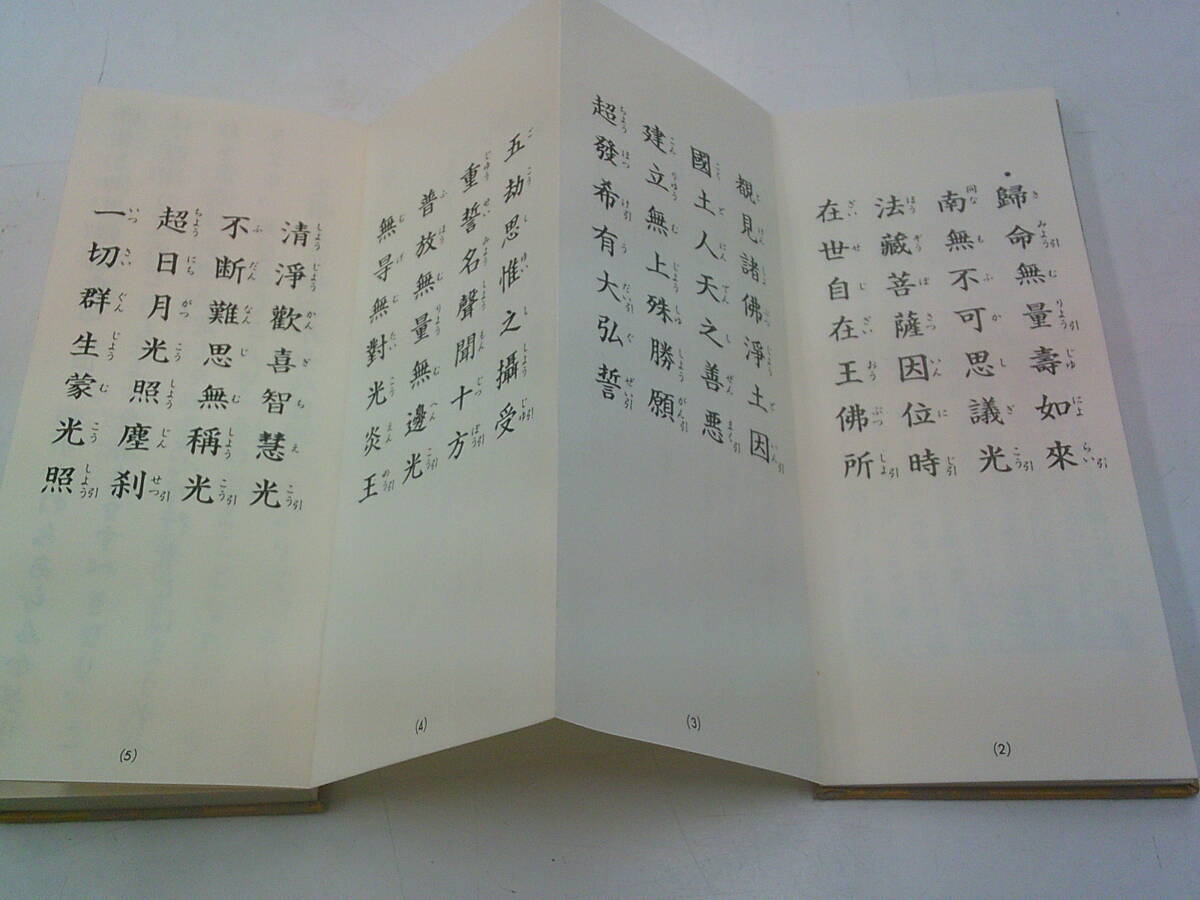 歸命無量壽如來
南無不可思議光
法藏菩薩因位時
在世自在王佛所
(2)
覩見諸佛淨土因
國土人天之善悪
建立無上殊勝願
超發希有大弘誓
(3)
五劫思惟之攝受
重誓名聲聞十方
普放無量無邊光
無㝵無對光炎王
(4)
清淨歡喜智慧光
不断難思無稱光
超日月光照塵刹
一切群生蒙光照
(5)